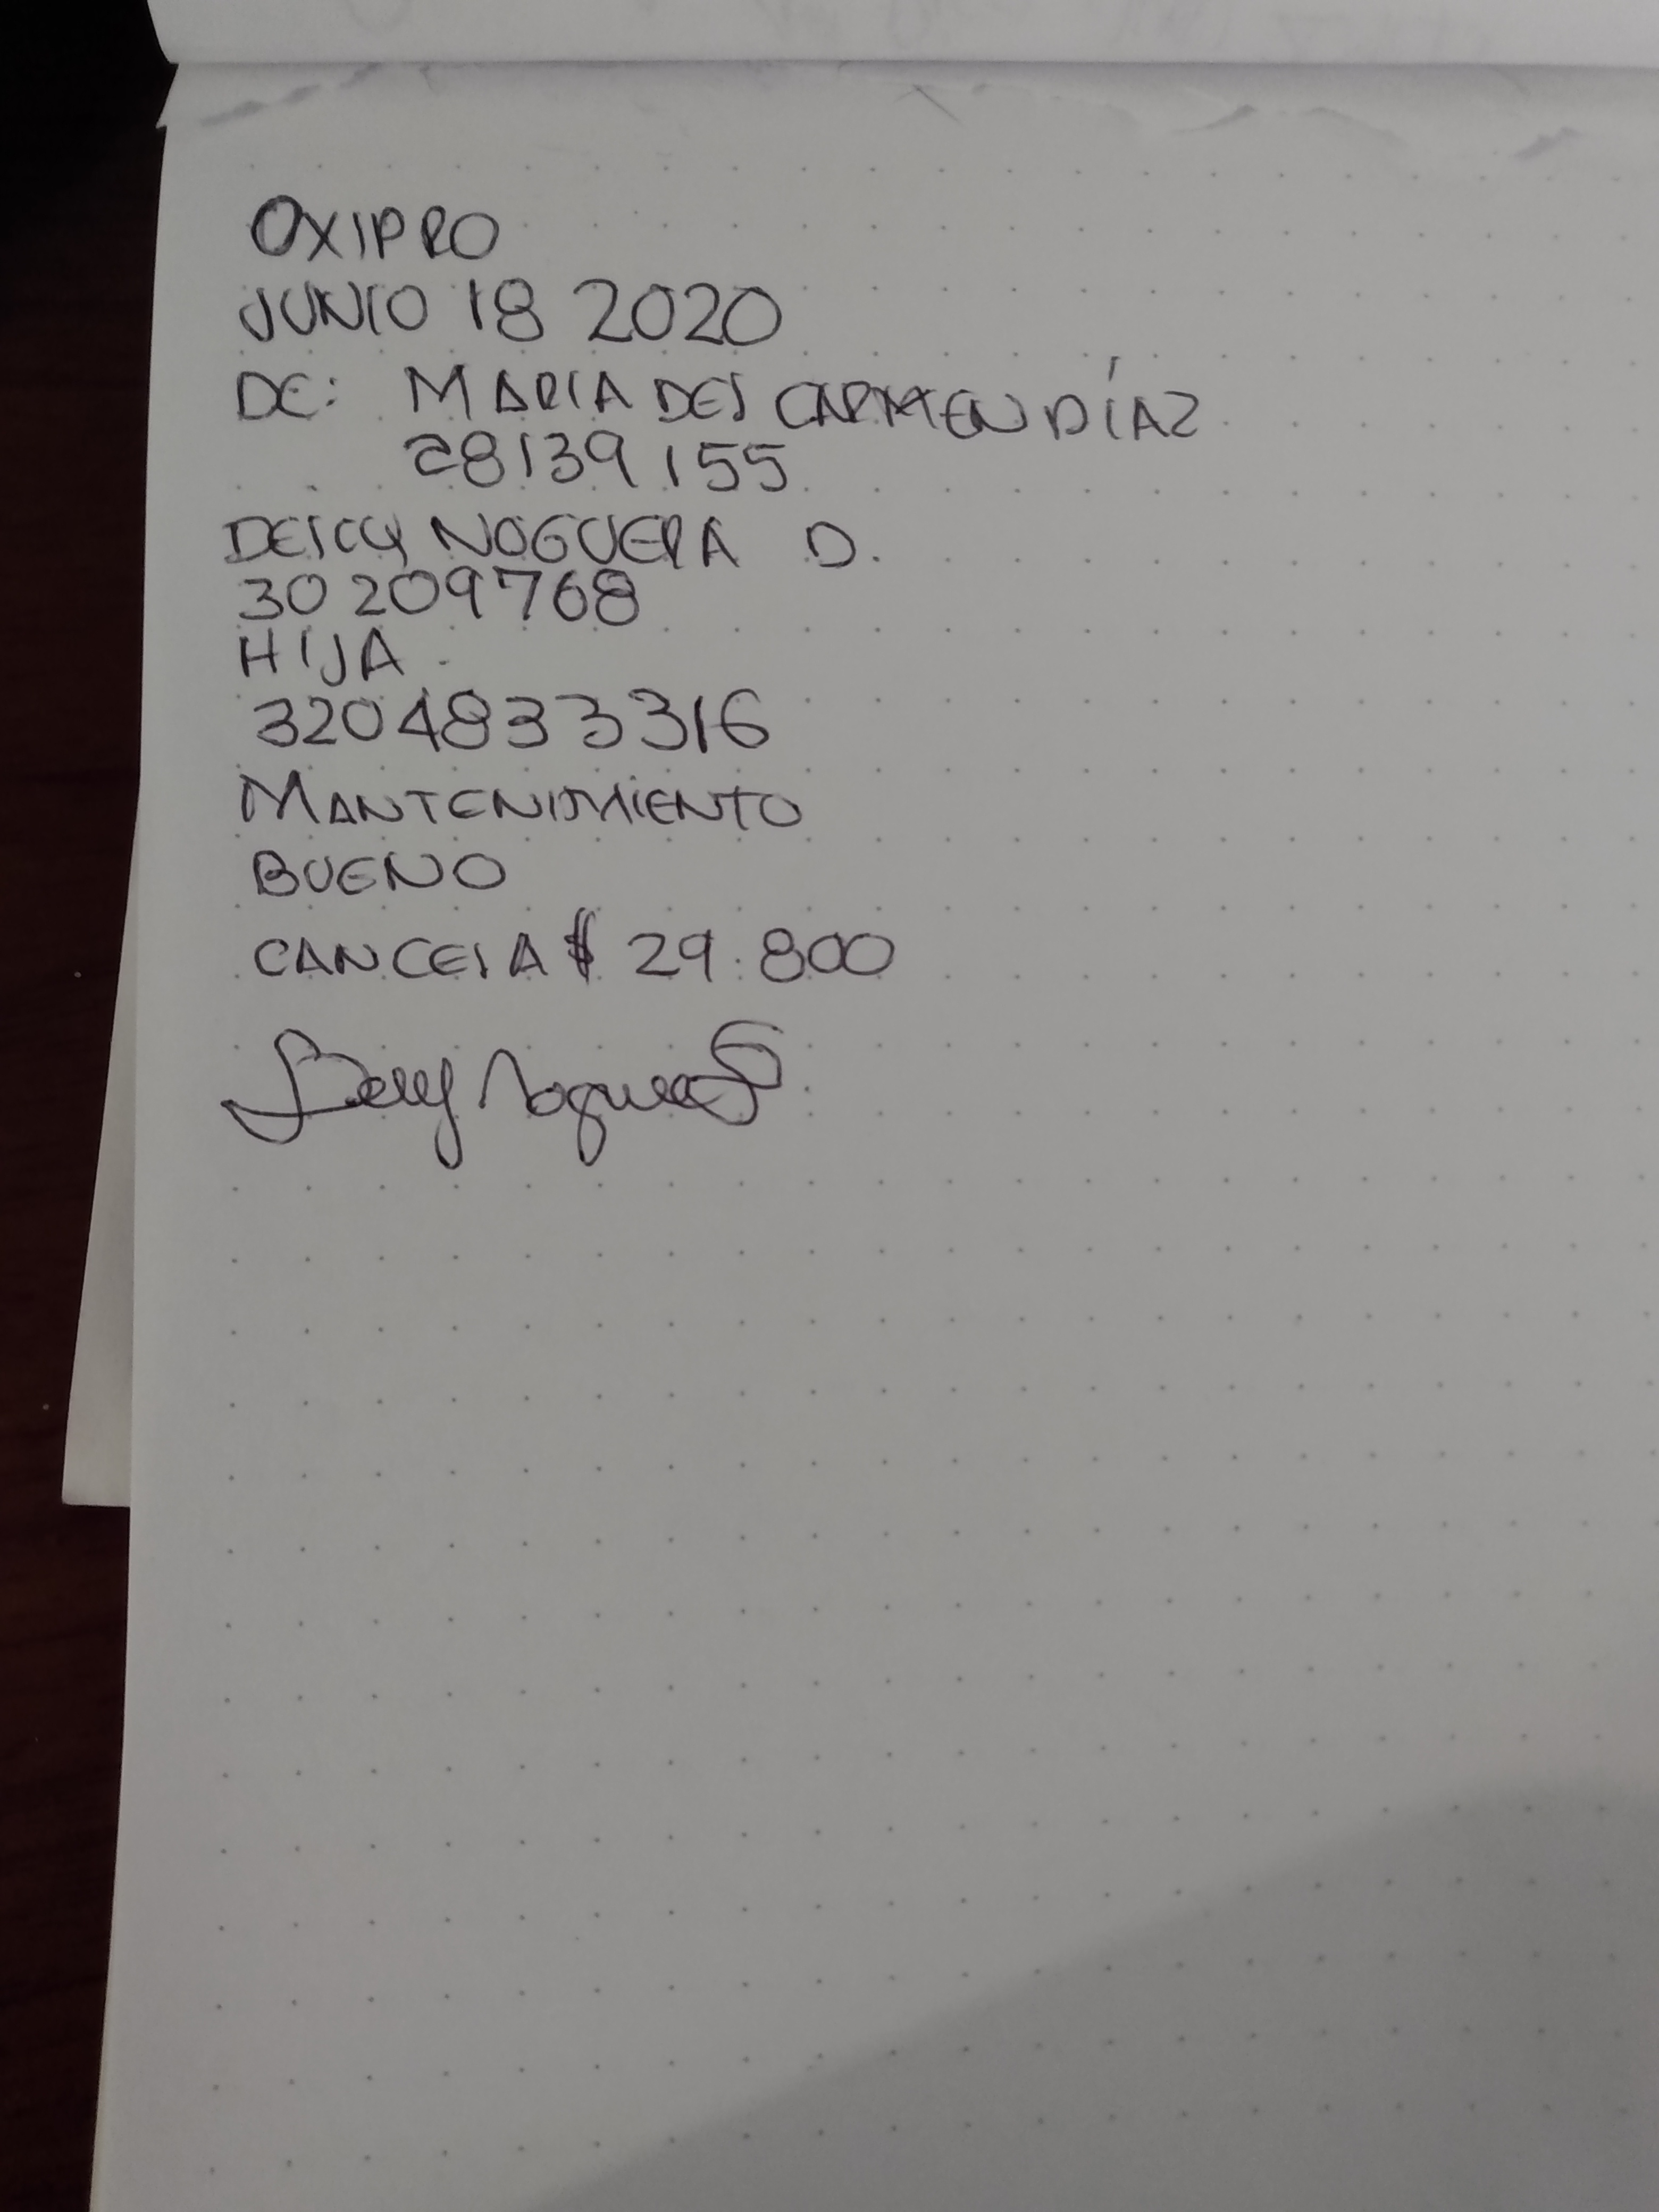 OXIPRO
JUNIO 18 2020
DE: MARIA DEL CARMEN DÍAZ
28139155
DEICY NOGUERA D.
30209768
HIJA.
3204833316
MANTENIMIENTO
BUENO
CANCELA $ 29.800
Deicy Noguera D